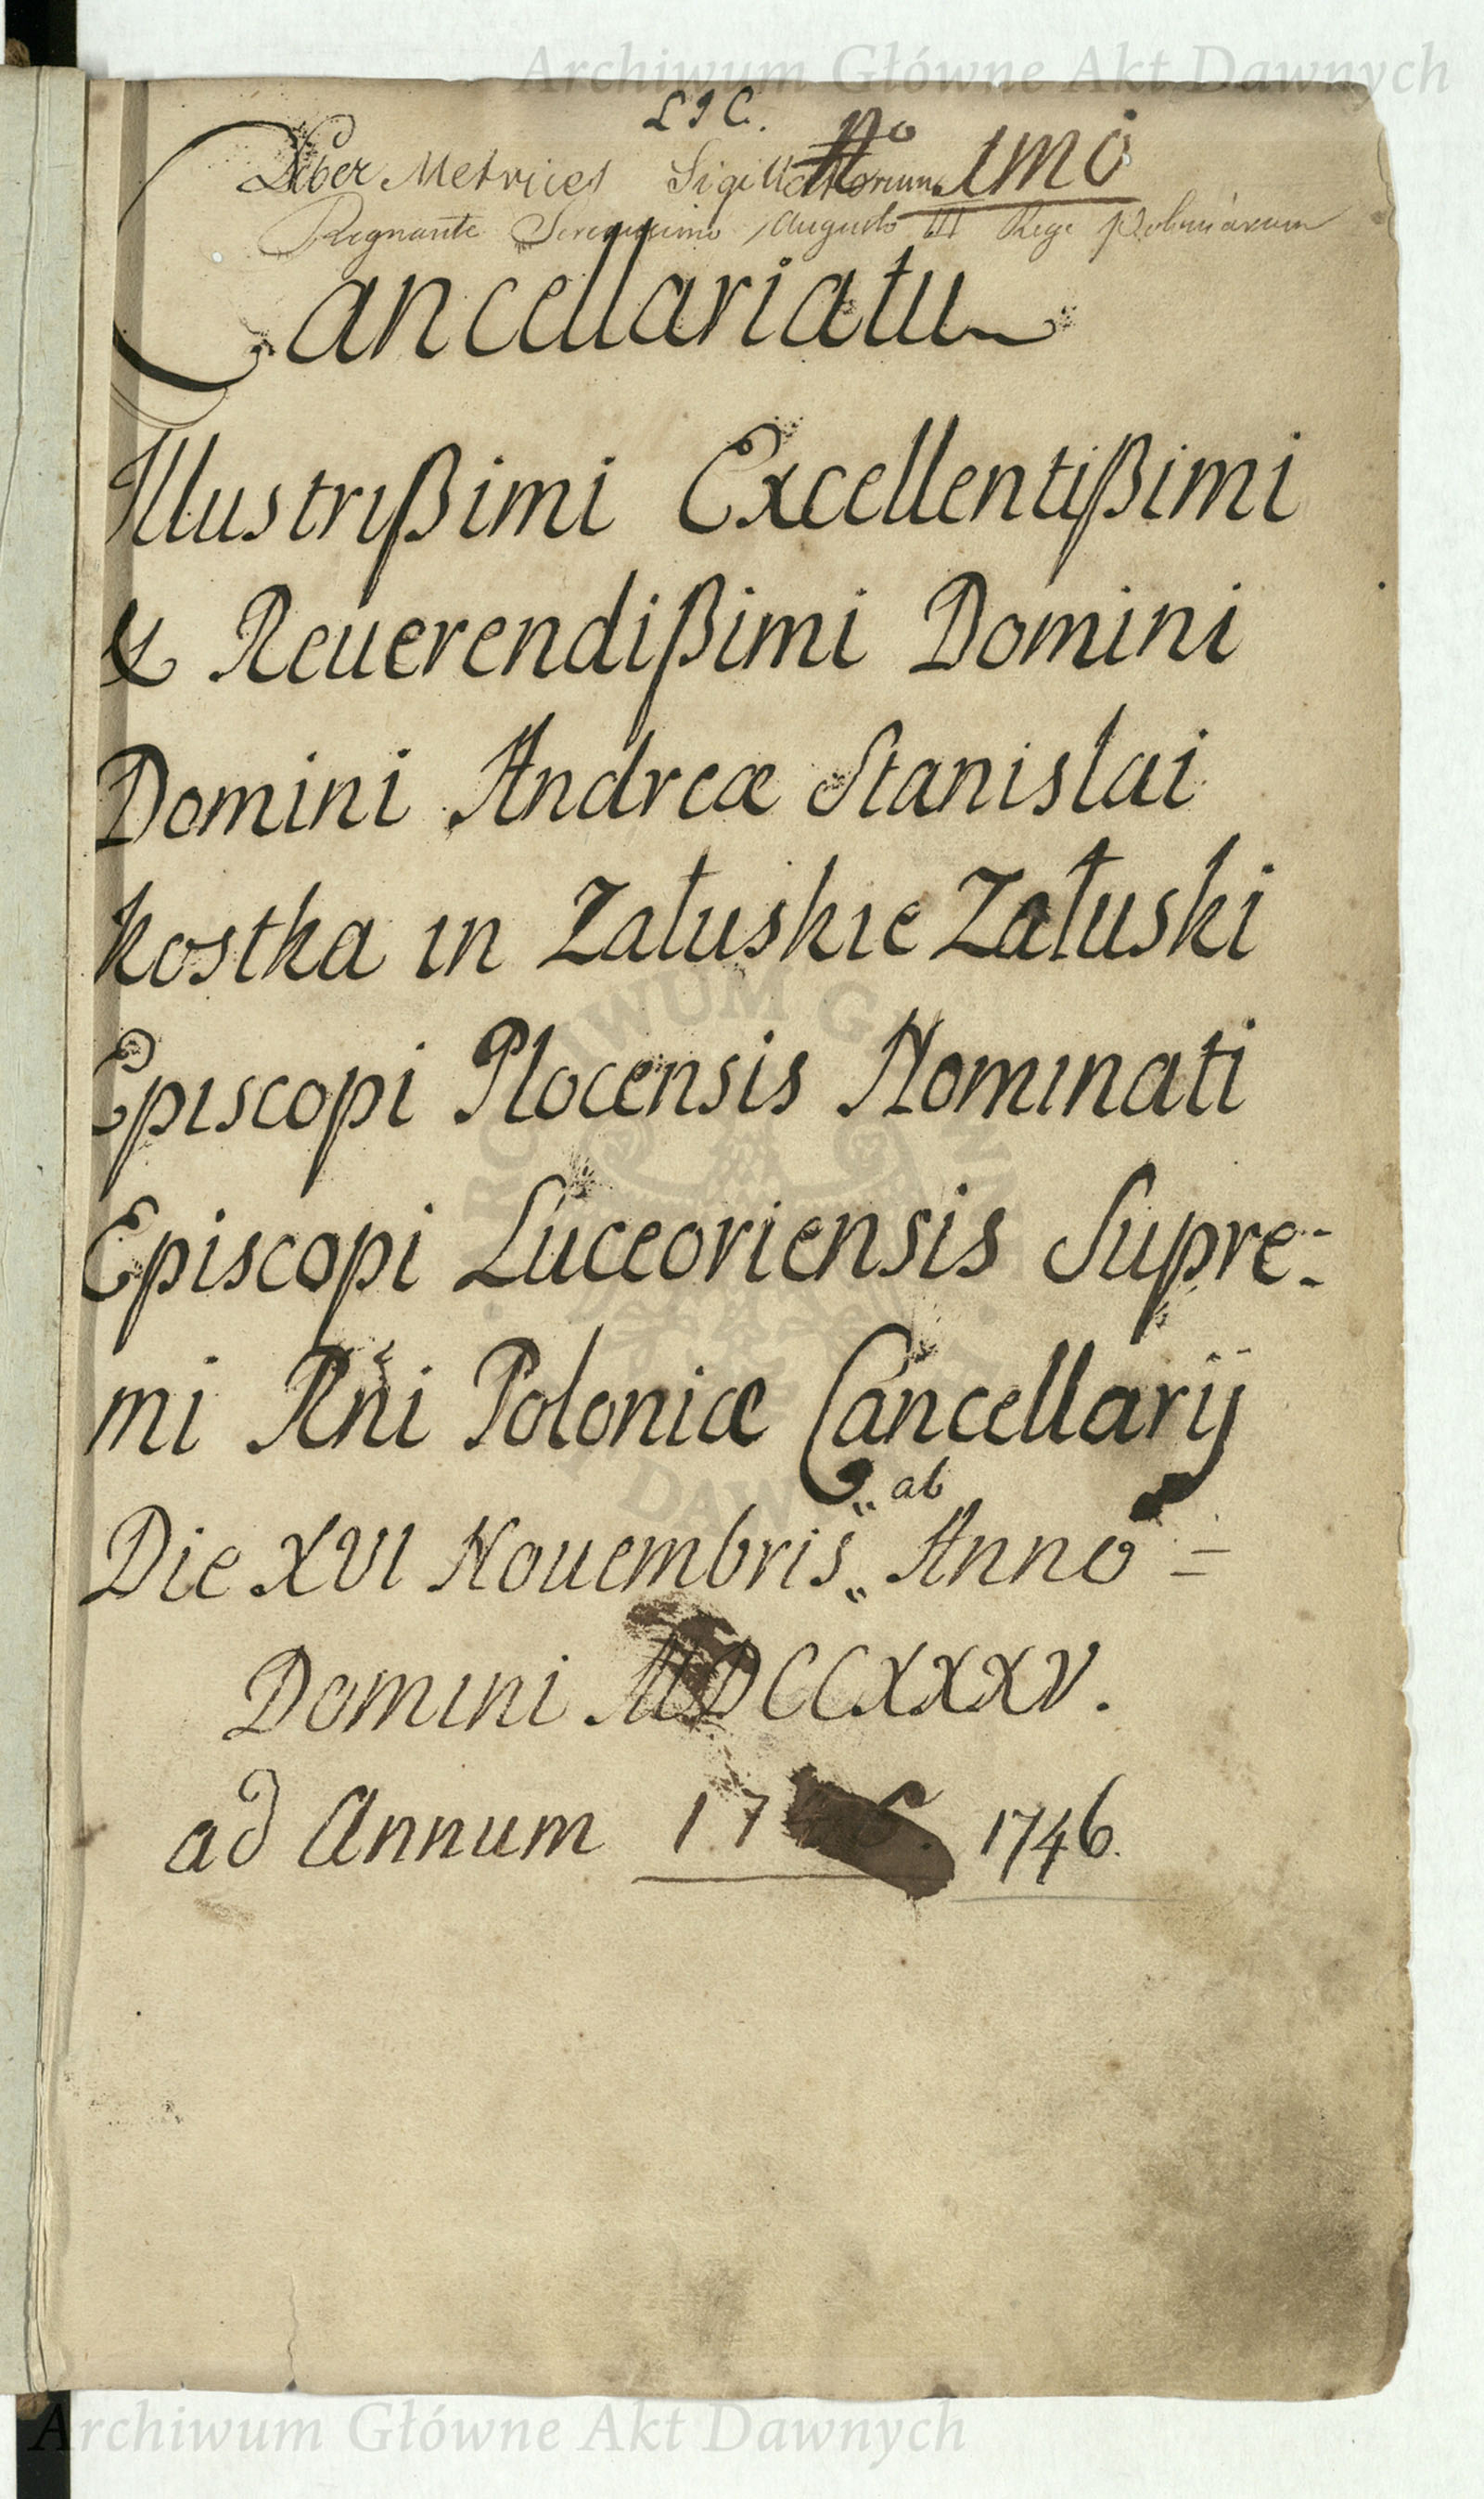 Archiwum Główne Akt Dawnych
Liber Metrices Sigillatorum
No 1mo
Regnante Serenissimo Augusto III Rege Poloniarum
Cancellariatu
Illustrißimi Excellentißimi
& Reuerendißimi Domini
Domini Andreæ Stanislai
kostka in Załuskie Załuski
Episcopi Plocensis Nominati
Episcopi Luceoriensis Supre:
mi Rni Poloniæ Cancellarij
Die XVI Nouembris„ ab Anno =
Domini MDCCXXXV.
ad Annum 17 1746.
Archiwum Główne Akt Dawnych